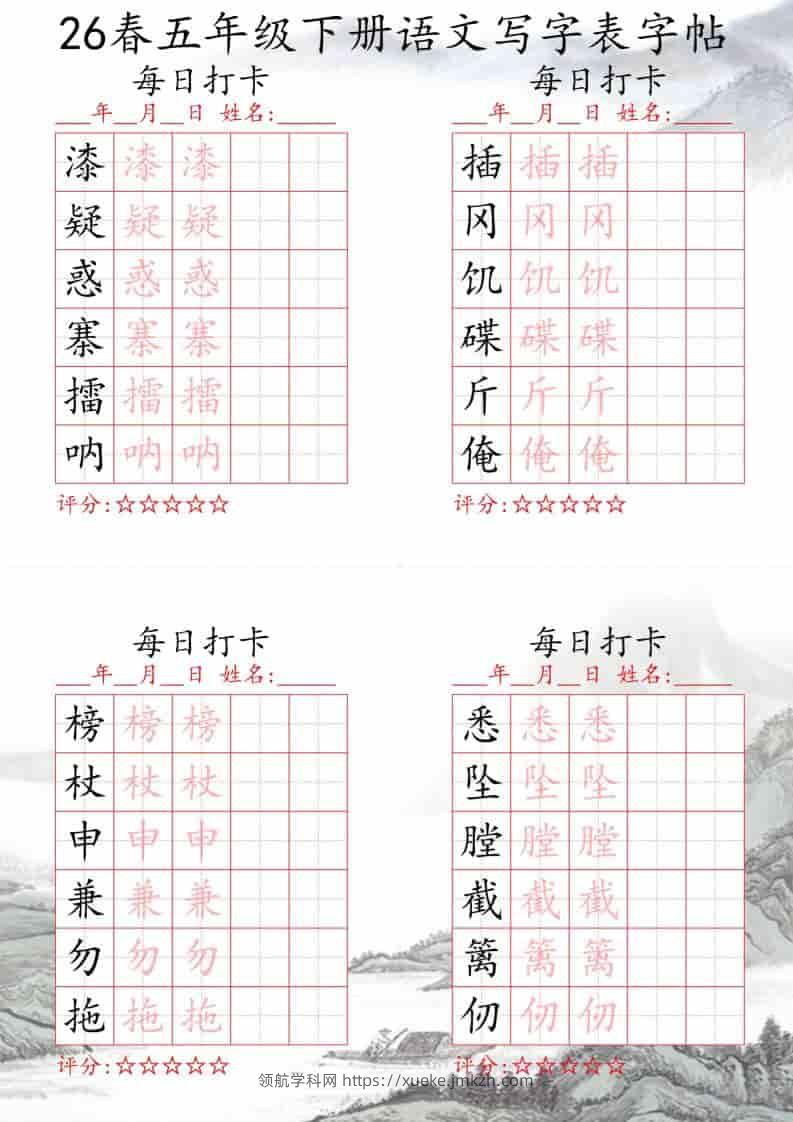 26春五年级下册语文写字表字帖
每日打卡
___年__月__日 姓名:_____
漆漆漆
疑疑疑
惑惑惑
寨寨寨
擂擂擂
呐呐呐
评分:☆☆☆☆☆
每日打卡
___年__月__日 姓名:_____
插插插
冈冈冈
饥饥饥
碟碟碟
斤斤斤
俺俺俺
评分:☆☆☆☆☆
每日打卡
___年__月__日 姓名:_____
榜榜榜
杖杖杖
申申申
兼兼兼
勿勿勿
拖拖拖
评分:☆☆☆☆☆
每日打卡
___年__月__日 姓名:_____
悉悉悉
坠坠坠
膛膛膛
截截截
篱篱篱
仞仞仞
评分:☆☆☆☆☆
领航学科网 https://xueke.jmkzh.com